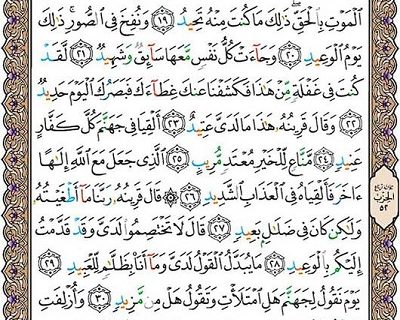 ٱلْمَوْتِ بِٱلْحَقِّ ۖ ذَٰلِكَ مَا كُنتَ مِنْهُ تَحِيدُ ﴿١٩﴾ وَنُفِخَ فِى ٱلصُّورِ ۚ ذَٰلِكَ
يَوْمُ ٱلْوَعِيدِ ﴿٢٠﴾ وَجَآءَتْ كُلُّ نَفْسٍ مَّعَهَا سَآئِقٌ وَشَهِيدٌ ﴿٢١﴾ لَّقَدْ
كُنتَ فِى غَفْلَةٍ مِّنْ هَٰذَا فَكَشَفْنَا عَنكَ غِطَآءَكَ فَبَصَرُكَ ٱلْيَوْمَ حَدِيدٌ
﴿٢٢﴾ وَقَالَ قَرِينُهُۥ هَٰذَا مَا لَدَىَّ عَتِيدٌ ﴿٢٣﴾ أَلْقِيَا فِى جَهَنَّمَ كُلَّ كَفَّارٍ
عَنِيدٍ ﴿٢٤﴾ مَّنَّاعٍ لِّلْخَيْرِ مُعْتَدٍ مُّرِيبٍ ﴿٢٥﴾ ٱلَّذِى جَعَلَ مَعَ ٱللَّهِ إِلَٰهًا
ءَاخَرَ فَأَلْقِيَاهُ فِى ٱلْعَذَابِ ٱلشَّدِيدِ ﴿٢٦﴾ ۞ قَالَ قَرِينُهُۥ رَبَّنَا مَآ أَطْغَيْتُهُۥ
وَلَٰكِن كَانَ فِى ضَلَٰلٍۭ بَعِيدٍ ﴿٢٧﴾ قَالَ لَا تَخْتَصِمُوا۟ لَدَىَّ وَقَدْ قَدَّمْتُ
إِلَيْكُم بِٱلْوَعِيدِ ﴿٢٨﴾ مَا يُبَدَّلُ ٱلْقَوْلُ لَدَىَّ وَمَآ أَنَا۠ بِظَلَّٰمٍ لِّلْعَبِيدِ ﴿٢٩﴾
يَوْمَ نَقُولُ لِجَهَنَّمَ هَلِ ٱمْتَلَأْتِ وَتَقُولُ هَلْ مِن مَّزِيدٍ ﴿٣٠﴾ وَأُزْلِفَتِ
الحزب
٥٢